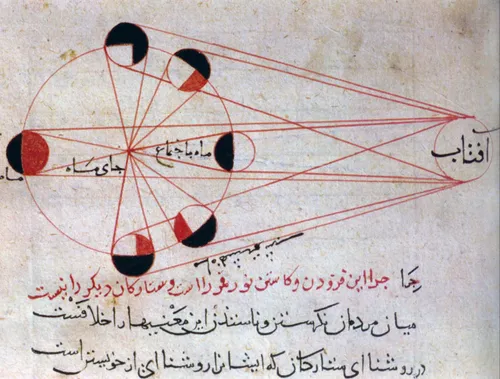 افتاب
ماه باجتماع
جای ماه
ماه
چرا این فزودن و کاستن نور قمر را است و ستارکان دیکر را نیست
میان مردمان نکرستن این اختلافست
در روشنای ستارکان که ایشانرا روشنای از خویشتن است